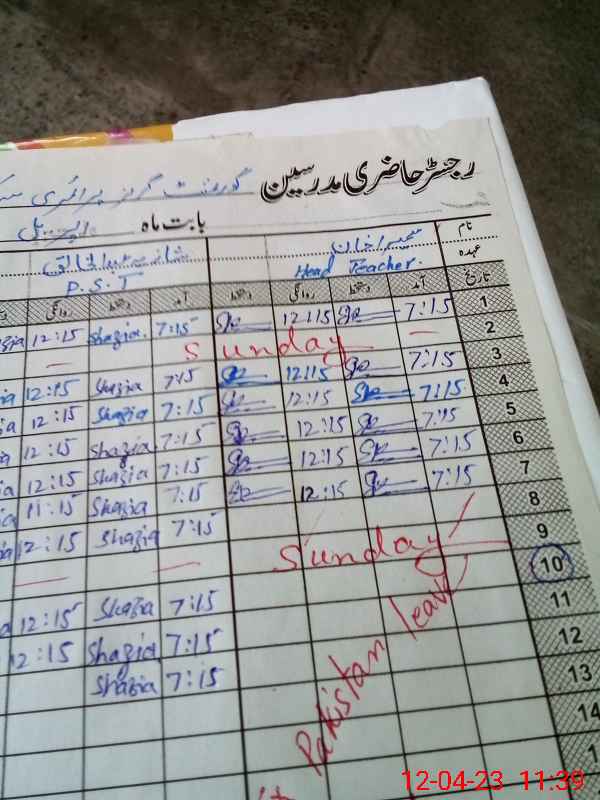 رجسٹر حاضری مدرسین گورنمنٹ گرلز پرائمری
بابت ماہ اپریل
نام
عہدہ Head Teacher. P.S.T
تاریخ آمد دستخط روانگی دستخط آمد دستخط روانگی
1 7:15 12:15 7:15 Shazia. 12:15
2 Sunday
3 7:15 12:15 7:15 Shazia 12:15
4 7:15 12:15 7:15 Shazia 12:15
5 7:15 12:15 7:15 Shazia 12:15
6 7:15 12:15 7:15 Shazia 12:15
7 7:15 12:15 7:15 Shazia 11:15
8 7:15 Shazia 12:15
9 Sunday
10 7:15 Shazia 12:15
11 7:15 Shazia 12:15
12 7:15 Shazia
13
14
Pakistan leave
12-04-23 11:39